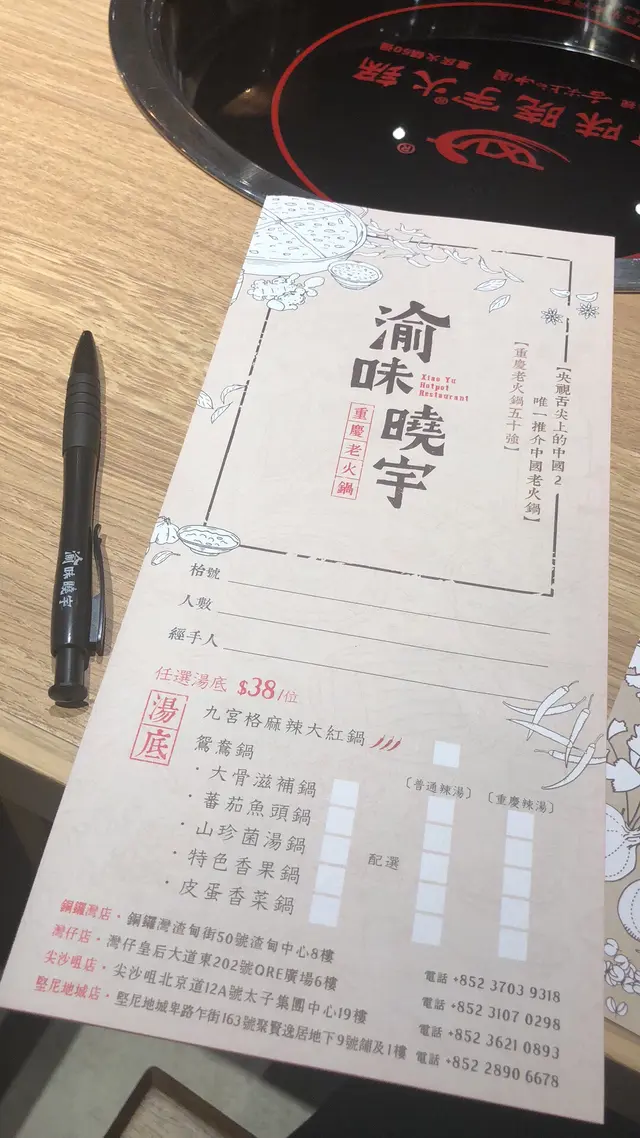 重慶火鍋50強
舌尖上的中國
味曉宇火鍋®
®
渝味曉宇
Xiao Yu
Hotpot
Restaurant
重慶老火鍋
【央視舌尖上的中國2
唯一推介中國老火鍋】
【重慶老火鍋五十強】
枱號
人數
經手人
渝味曉宇
任選湯底 $38/位
湯底
九宮格麻辣大紅鍋
鴛鴦鍋
〔普通辣湯〕 〔重慶辣湯〕
· 大骨滋補鍋
· 蕃茄魚頭鍋
· 山珍菌湯鍋
配選
· 特色香果鍋
· 皮蛋香菜鍋
銅鑼灣店 · 銅鑼灣渣甸街50號渣甸中心8樓 電話 +852 3703 9318
灣仔店 · 灣仔皇后大道東202號QRE廣場6樓 電話 +852 3107 0298
尖沙咀店 · 尖沙咀北京道12A號太子集團中心19樓 電話 +852 3621 0893
堅尼地城店 · 堅尼地城卑路乍街163號聚賢逸居地下9號舖及1樓 電話 +852 2890 6678